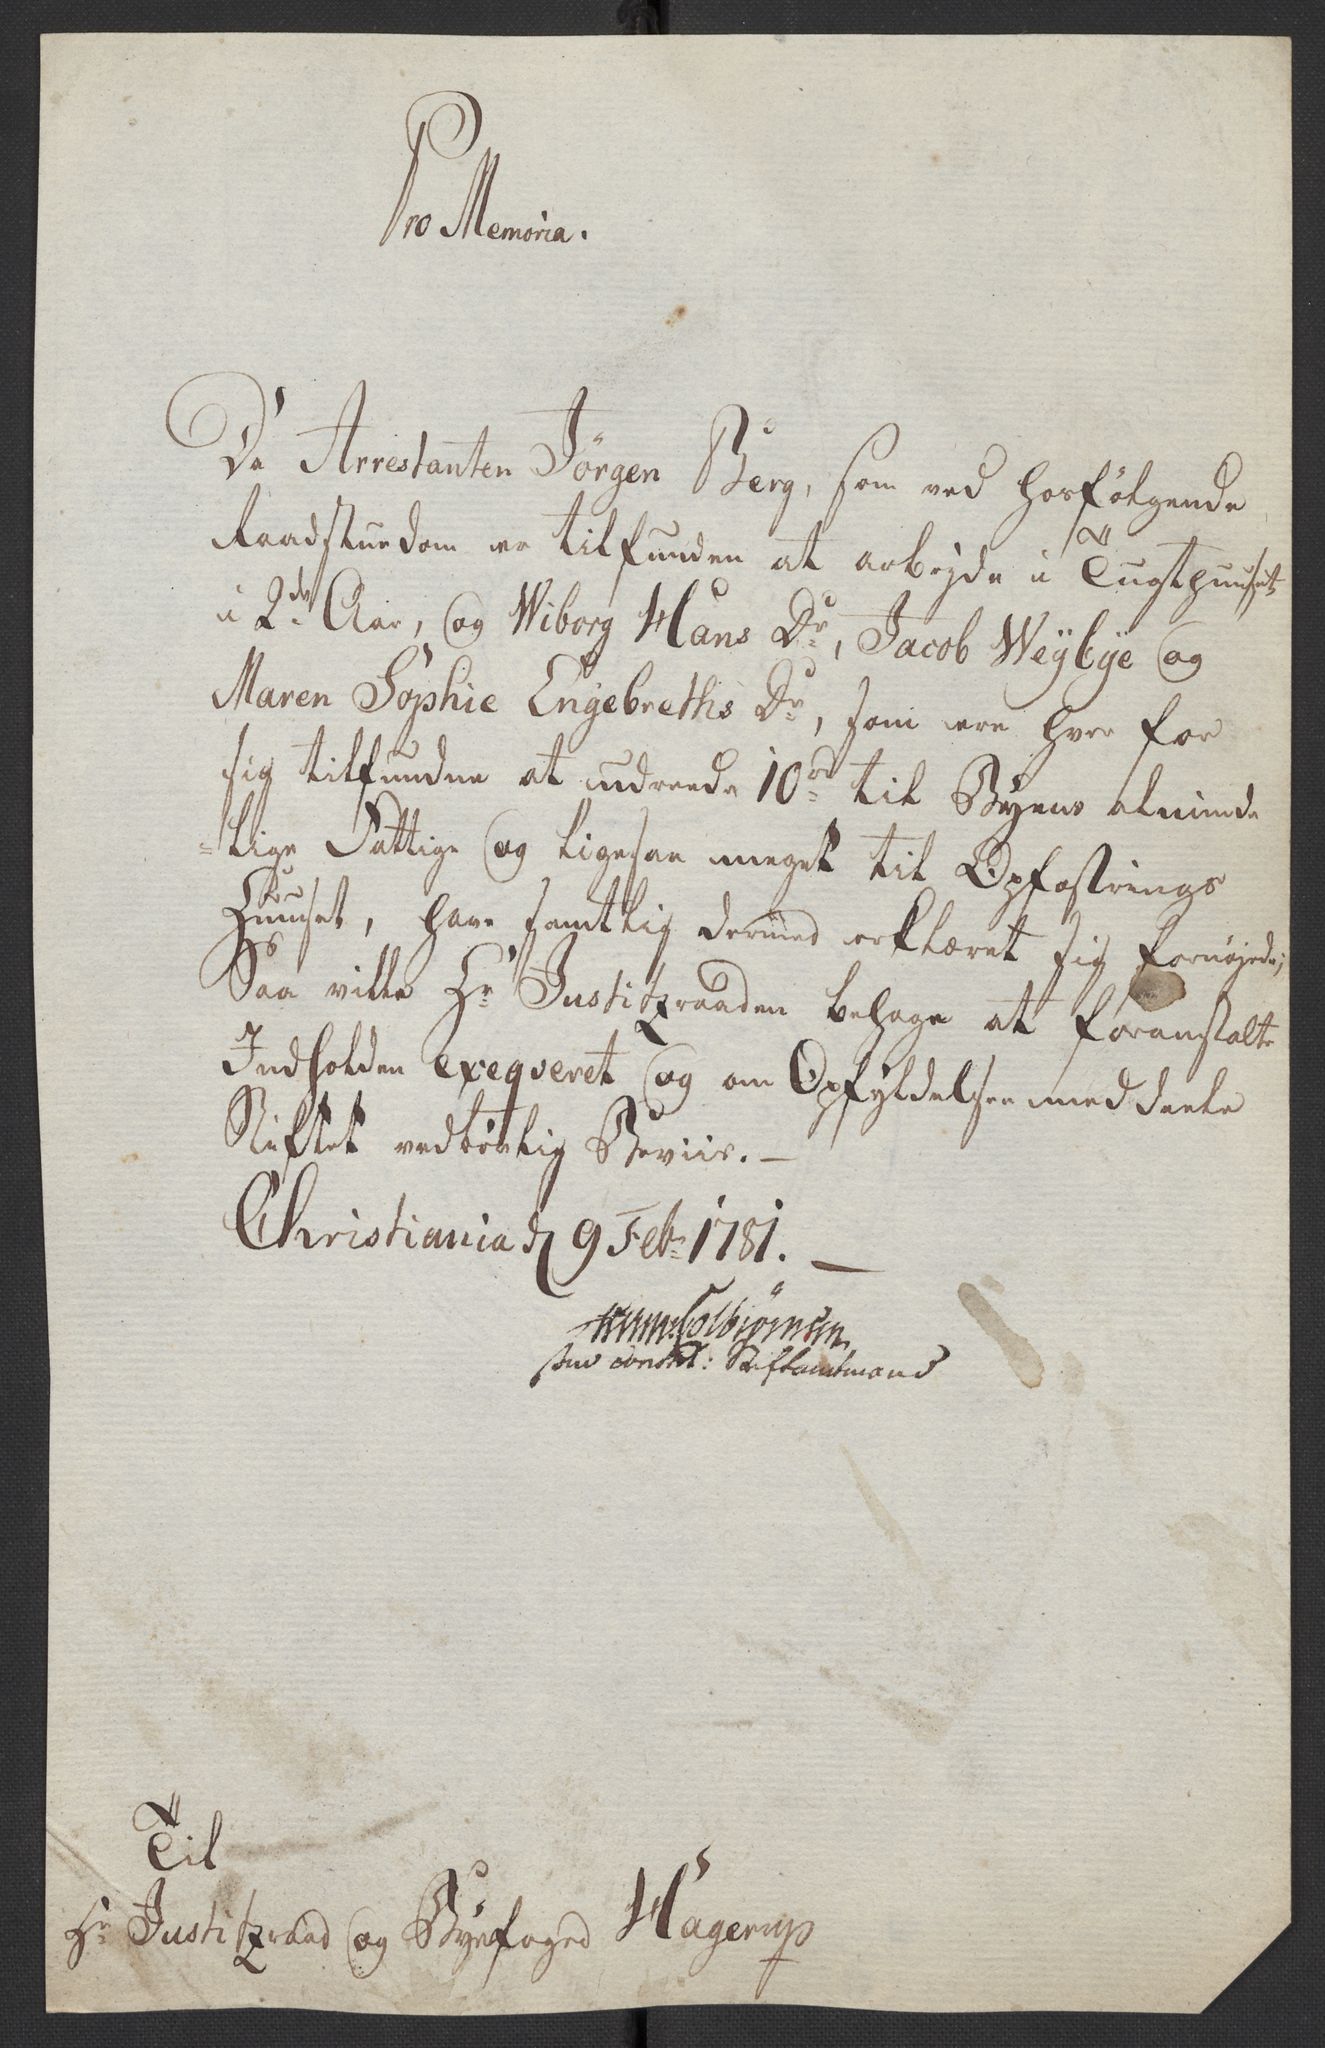 Pro Memoria.
Da Arrestanten Jörgen Berg, som ved hosfölgende
Raadstuedom er tilfunden at arbejde i Tugthuuset
i 2de Aar, og Wiborg Hans Dr, Jacob Weÿbÿe og
Maren Sophie Engebreths Dr, som ere hver for
sig tilfundne at udreede 10 rd til Byens alminde
=lige Fattige og ligesaa meget til Opfostrings
Huuset, have samtlig dermed erklæret sig fornøjede;
Saa ville Hr Justitzraaden behage at foranstalte
Indholden exeqveret og om Opfyldelsen meddeele
Stiftet vedbørlig Beviis. —
Christiania d 9 Feb: 1781. —
Colbiørnsen
som constit: Stiftamtmand
Til
Hr Justitzraad og Byefoged Hagerup